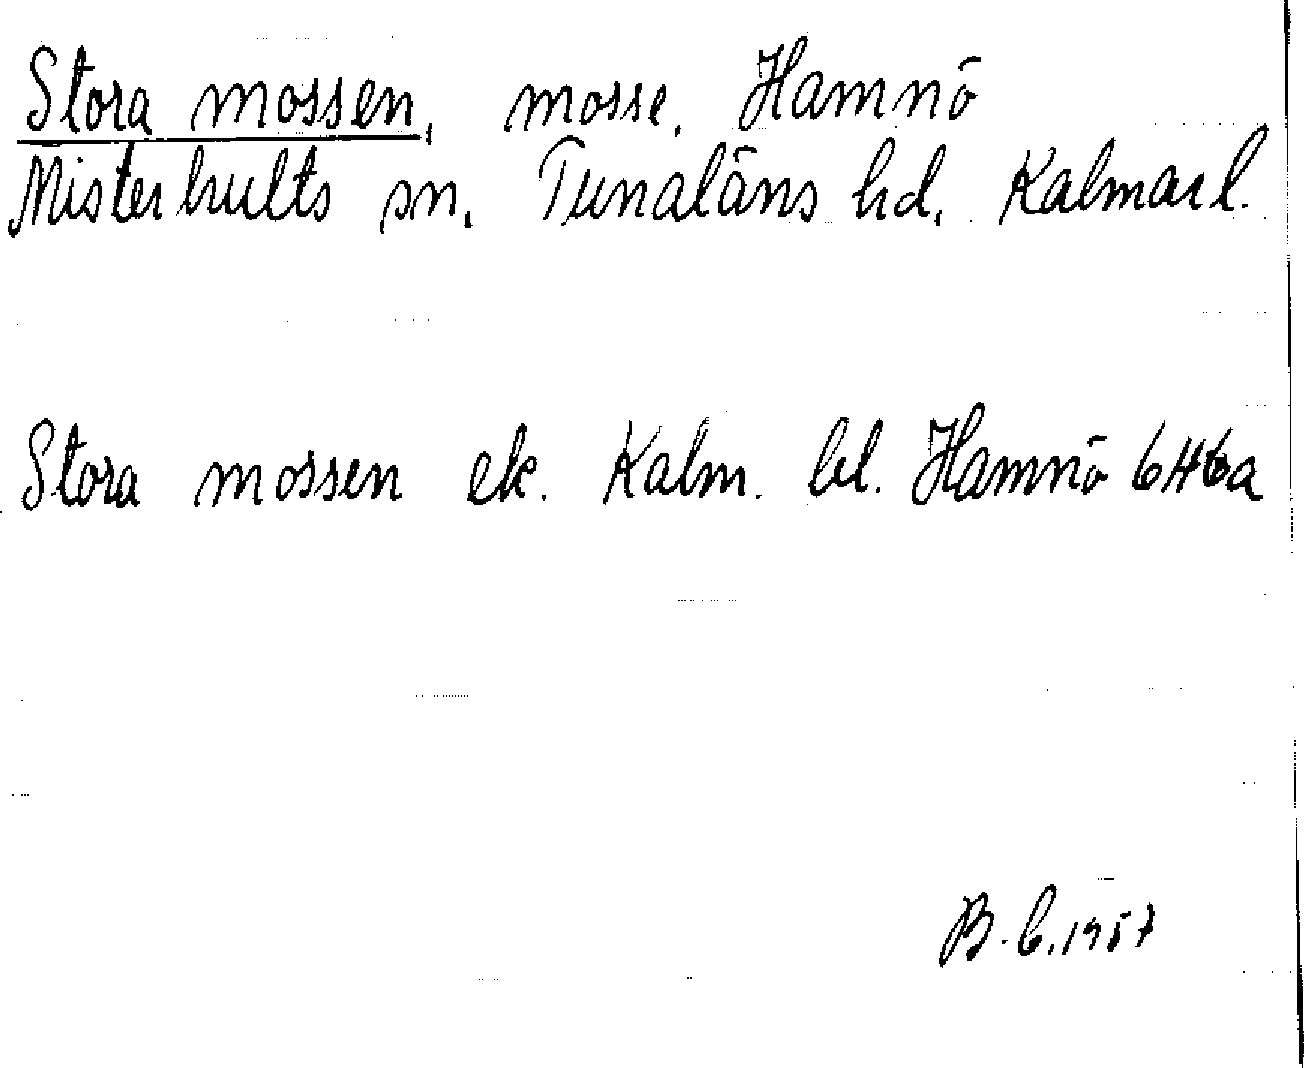 Stora mossen, mosse, Hamnö
Misterhults sn, Tunaläns hd, Kalmar l.
Stora mossen ek. Kalm. bl. Hamnö 6H6a
B. C. 1957